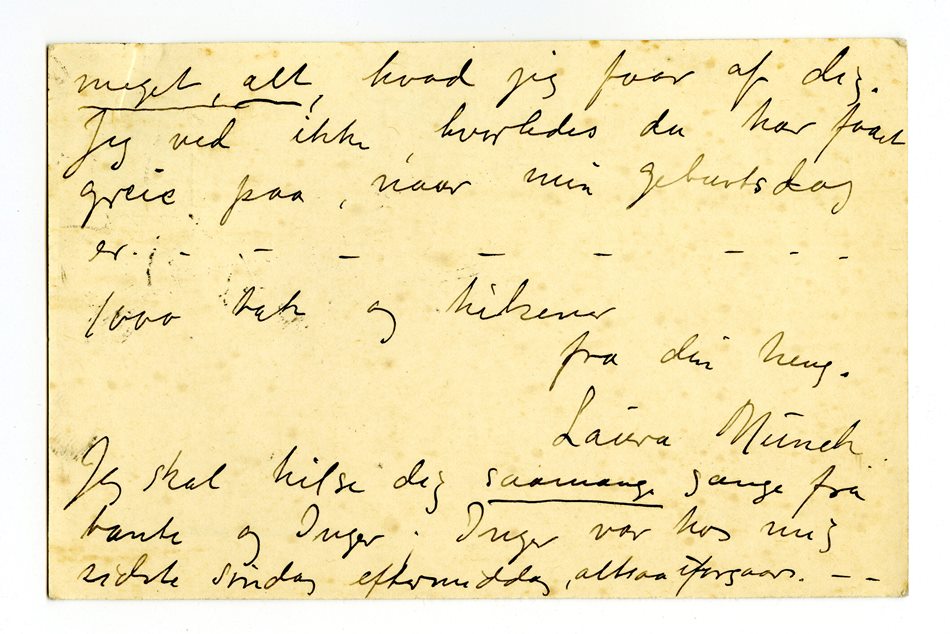 meget, alt, hvad jeg faar af dig.
Jeg ved ikke, hvorledes du har faaet
greie paa, naar min geburtsdag
er. - - - - - - - -
1000 tak og hilsener
fra din heng.
Laura Munch
Jeg skal hilse dig saamange gange fra
tante og Inger. Inger var hos mig
sidste søndag eftermiddag, altsaa iforgaars. - -